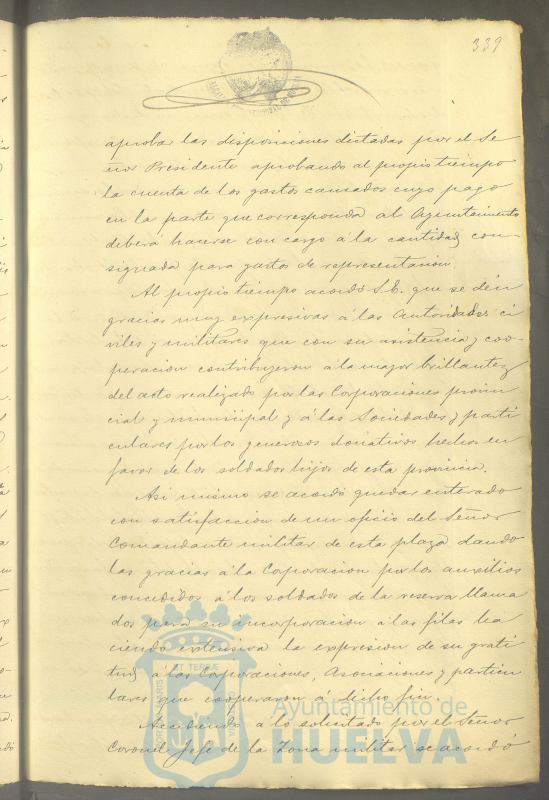 339
aprobar las disposiciones dictadas por el Se
ñor Presidente aprobando al propio tiempo
la cuenta de los gastos causados cuyo pago
en la parte que corresponda al Ayuntamiento
deberá hacerse con cargo á la cantidad con-
signada para gastos de representación
Al propio tiempo acordó S.E. que se den
gracias muy expresivas á las Autoridades ci
viles y militares que con su asistencia y coo-
peracion contribuyeron á la mayor brillantez
del acto realizado por las Corporaciones provin
cial y municipal y á las Sociedades y parti
culares por los generosos donativos hechos en
favor de los soldados hijos de esta provincia.
Asi mismo se acordó quedar enterado
con satisfaccion de un oficio del Señor
Comandante militar de esta plaza dando
las gracias á la Corporacion por los auxilios
concedidos á los soldados de la reserva llama
dos para su incorporacion á las filas ha
ciendo extensiva la expresion de su grati
tud á las Corporaciones, Asociaciones y particu
lares que cooperaron á dicho fin
Accediendo á lo solicitado por el Señor
Coronel Jefe de la Zona militar se acordó
Ayuntamiento de
HUELVA